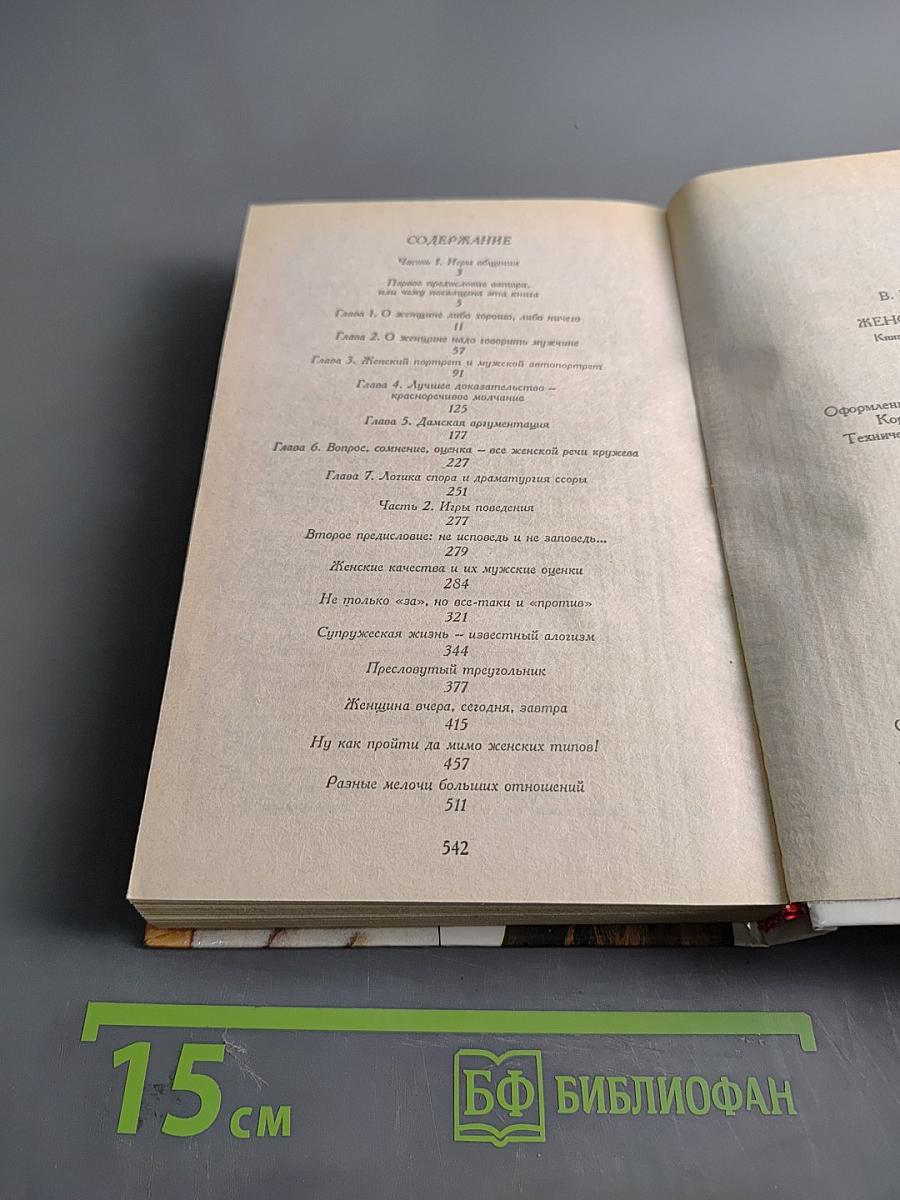 СОДЕРЖАНИЕ
Часть 1. Игры общения
3
Первое предисловие автора,
или чему посвящена эта книга
5
Глава 1. О женщине либо хорошо, либо ничего
11
Глава 2. О женщине надо говорить мужчине
57
Глава 3. Женский портрет и мужской автопортрет
91
Глава 4. Лучшее доказательство –
красноречивое молчание
125
Глава 5. Дамская аргументация
177
Глава 6. Вопрос, сомнение, оценка – все женской речи кружева
227
Глава 7. Логика спора и драматургия ссоры
251
Часть 2. Игры поведения
277
Второе предисловие: не исповедь и не заповедь...
279
Женские качества и их мужские оценки
284
Не только «за», но все-таки и «против»
321
Супружеская жизнь – известный алогизм
344
Пресловутый треугольник
377
Женщина вчера, сегодня, завтра
415
Ну как пройти да мимо женских типов!
457
Разные мелочи больших отношений
511
542
В.
ЖЕНС
Книг
Оформлени
Кор
Техниче
15 см
БФ БИБЛИОФАН